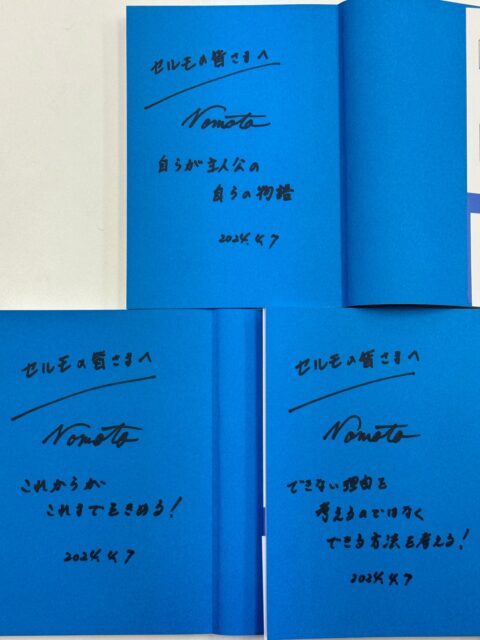 セルモの皆さまへ
Nomoto
自らが主人公の
自らの物語
2024.4.7
セルモの皆さまへ
Nomoto
これからが
これまでをきめる!
2024.4.7
セルモの皆さまへ
Nomoto
できない理由を
考えるのではなく
できる方法を考える!
2024.4.7